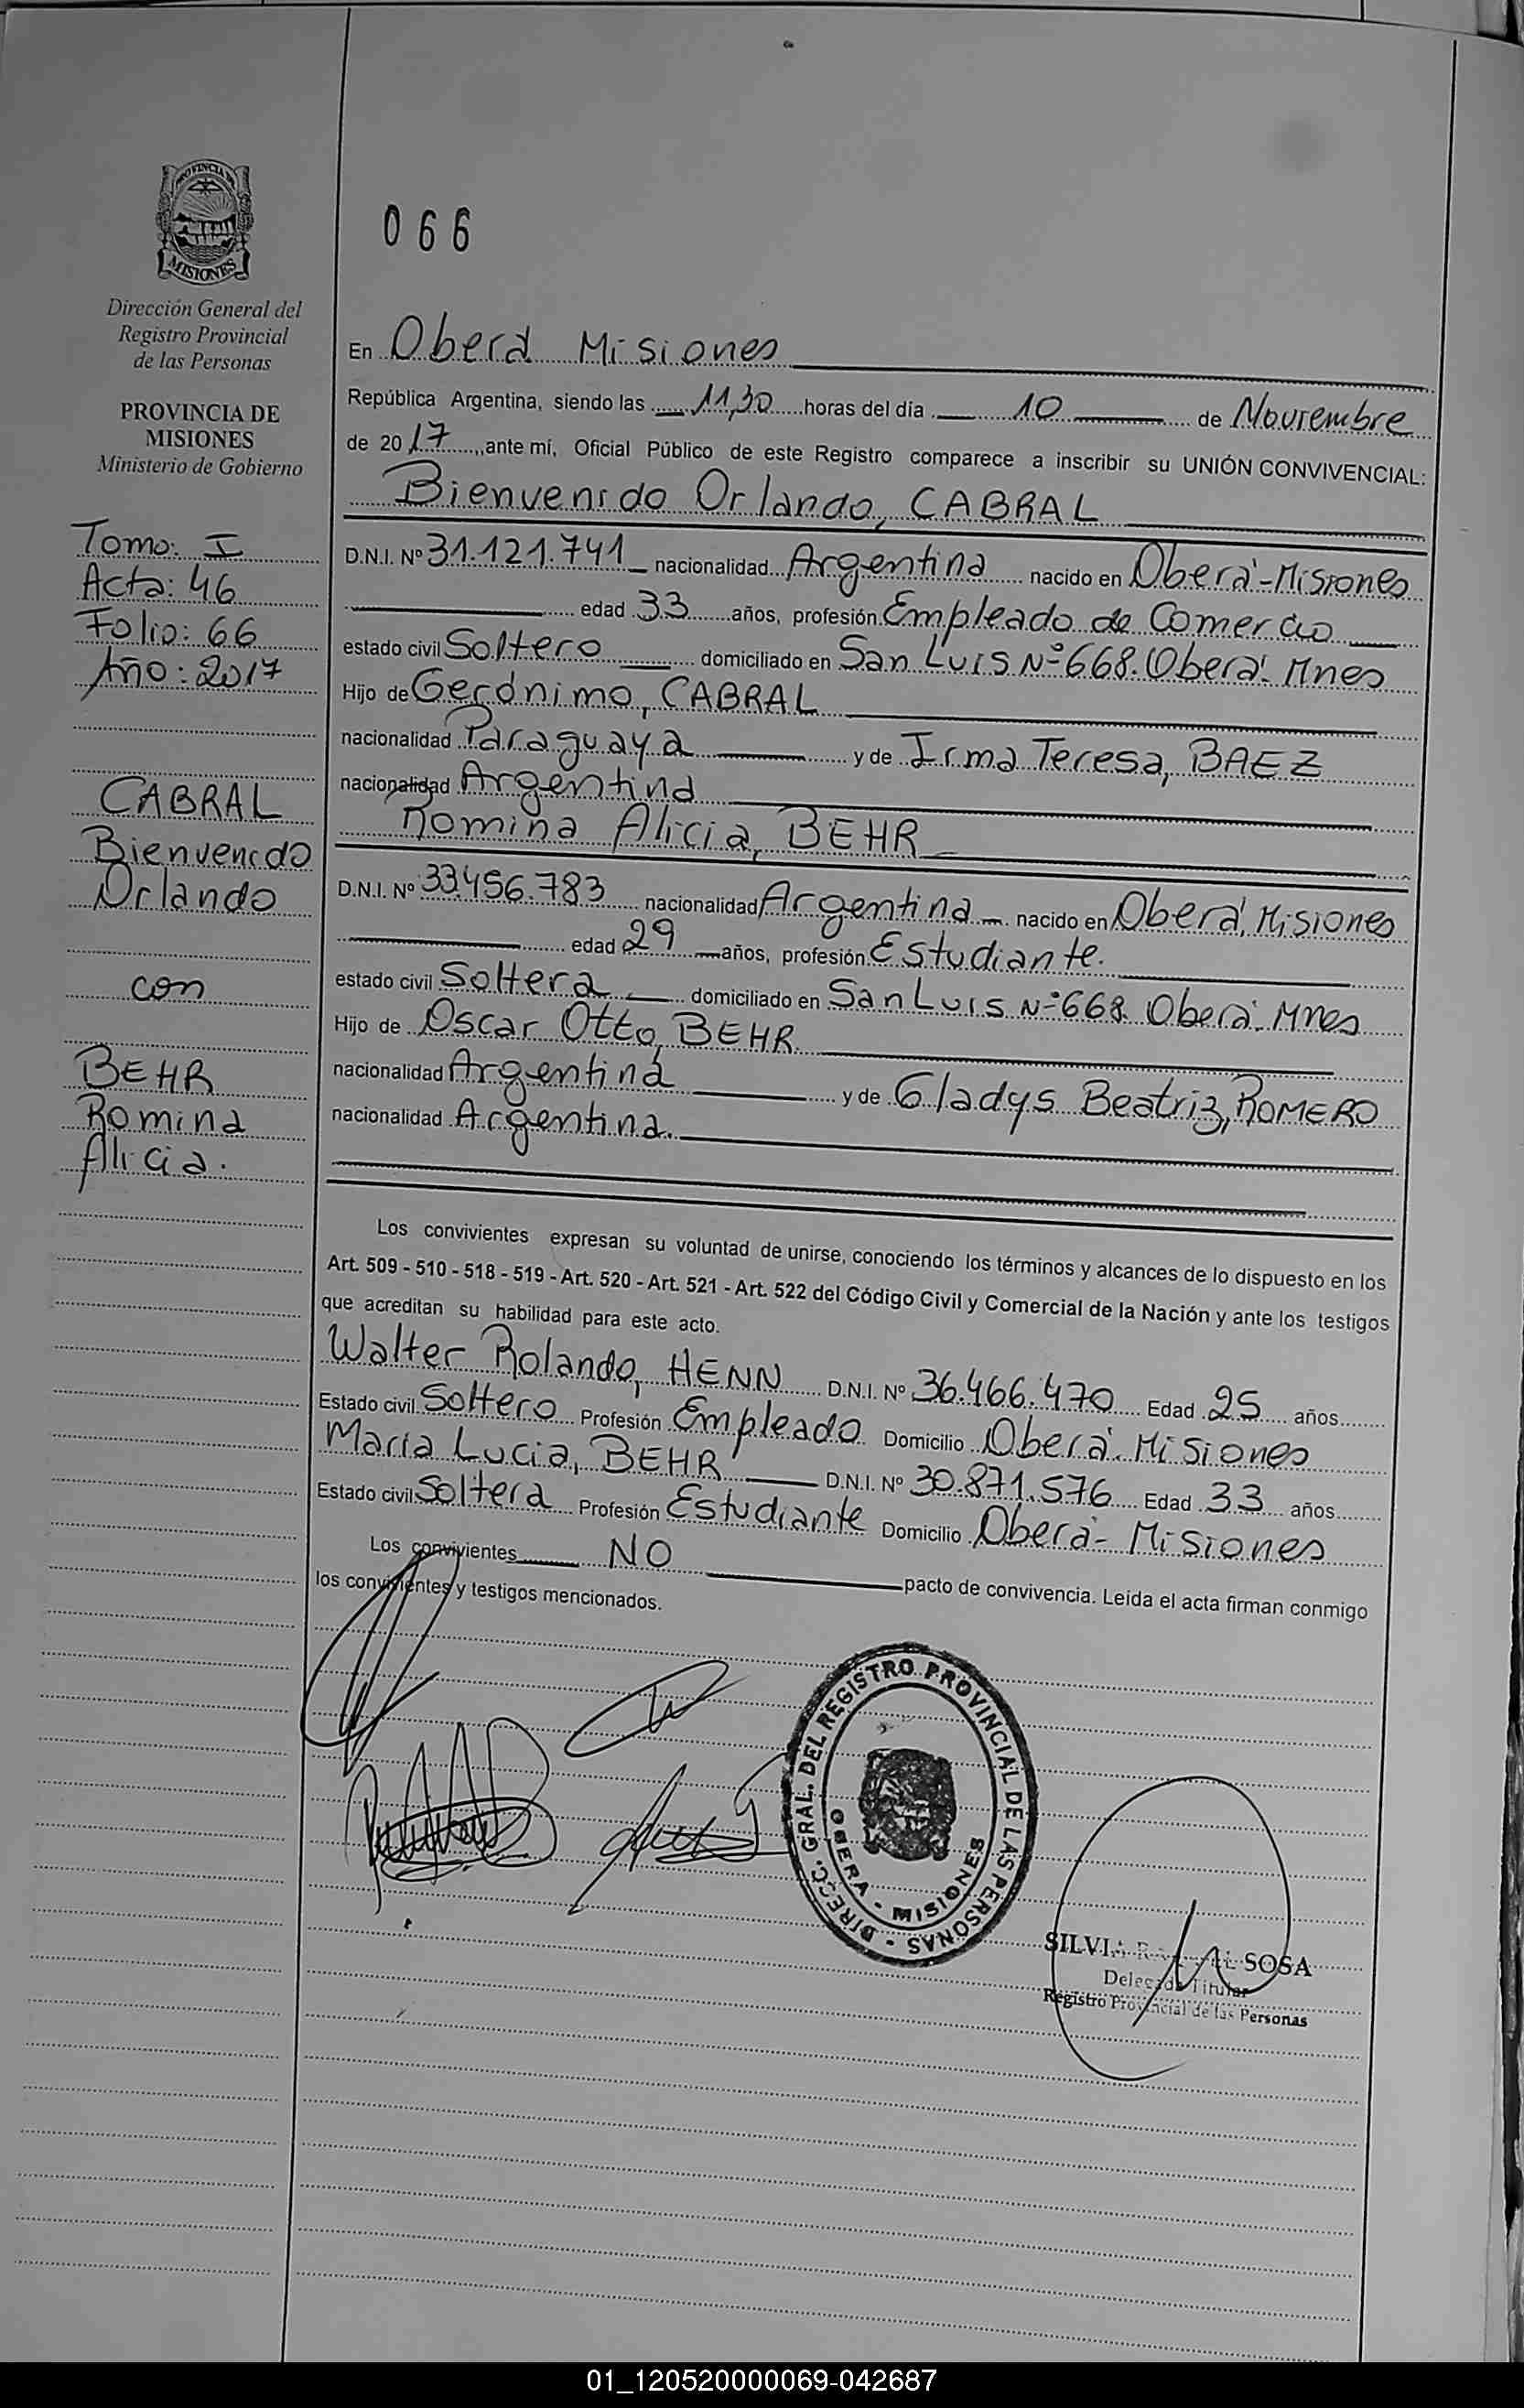 PROVINCIA DE
MISIONES
Dirección General del
Registro Provincial
de las Personas
PROVINCIA DE
MISIONES
Ministerio de Gobierno
Tomo: I
Acta: 46
Folio: 66
Año: 2017
CABRAL
Bienvenido
Orlando
con
BEHR
Romina
Alicia.
066
En Oberá Misiones
República Argentina, siendo las 11,30 horas del día 10 de Noviembre
de 2017, ante mí, Oficial Público de este Registro comparece a inscribir su UNIÓN CONVIVENCIAL:
Bienvenido Orlando, CABRAL
D.N.I. Nº 31.121.741 nacionalidad Argentina nacido en Oberá-Misiones
edad 33 años, profesión Empleado de Comercio
estado civil Soltero domiciliado en San Luis Nº 668. Oberá. Mnes
Hijo de Gerónimo, CABRAL
nacionalidad Paraguaya y de Irma Teresa, BAEZ
nacionalidad Argentina
Romina Alicia, BEHR
D.N.I. Nº 33.456.783 nacionalidad Argentina nacido en Oberá, Misiones
edad 29 años, profesión Estudiante.
estado civil Soltera domiciliado en San Luis Nº 668. Oberá. Mnes
Hijo de Oscar Otto, BEHR.
nacionalidad Argentina y de Gladys Beatriz, ROMERO
nacionalidad Argentina.
Los convivientes expresan su voluntad de unirse, conociendo los términos y alcances de lo dispuesto en los
Art. 509 - 510 - 518 - 519 - Art. 520 - Art. 521 - Art. 522 del Código Civil y Comercial de la Nación y ante los testigos
que acreditan su habilidad para este acto.
Walter Rolando, HENN D.N.I. Nº 36.466.470 Edad 25 años
Estado civil Soltero Profesión Empleado Domicilio Oberá. Misiones
María Lucia, BEHR D.N.I. Nº 30.871.576 Edad 33 años
Estado civil Soltera Profesión Estudiante Domicilio Oberá- Misiones
Los convivientes NO pacto de convivencia. Leída el acta firman conmigo
los convivientes y testigos mencionados.
DIRECC. GRAL. DEL REGISTRO PROVINCIAL DE LAS PERSONAS -
OBERA - MISIONES
SILVIA SOSA
Delegada Titular
Registro Provincial de las Personas
01_120520000069-042687